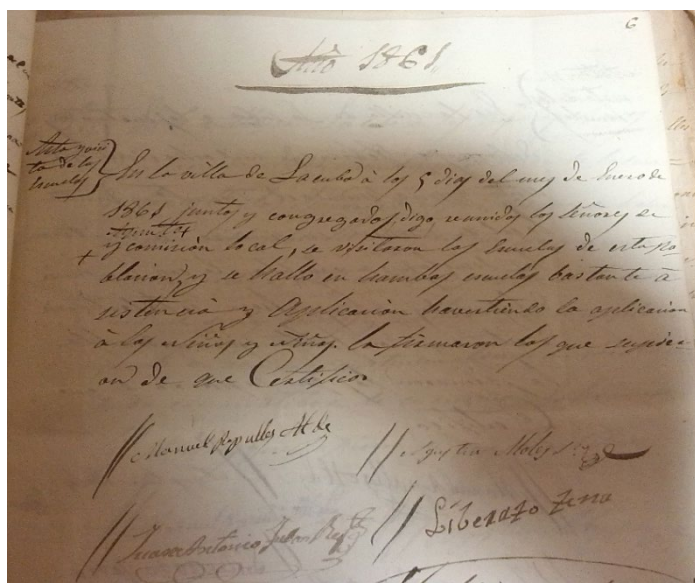 6
Año 1861
Acta y visi
ta de las
escuelas
En la villa de Lacuba à los 5 dias del mes de Enero de
1861 juntos y congregados digo reunidos los Señores de
Ayunto +
+ y comision local, se visitaron las Escuelas de esta po-
blacion, y se hallo en hambas escuelas bastante à
sistencia y Aplicacion havirtiendo la aplicacion
à los niños y niñas. lo firmaron los que supier-
on de que Certifico
Manuel Repulles Alde
Agustin Moles
Juan Antonio Julian
Liberato Zena